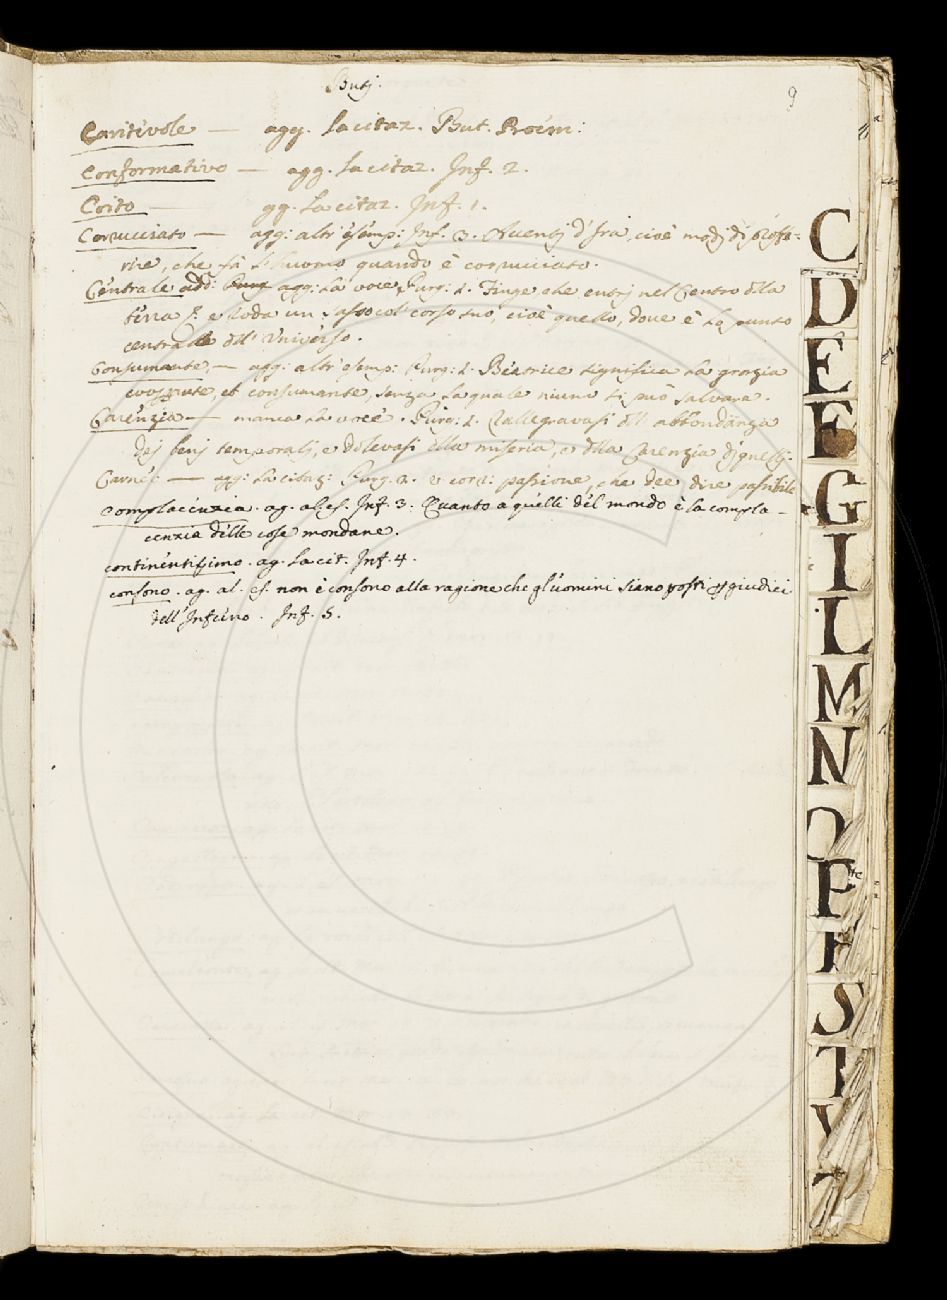 Butj.
9
Caritivole — agg. la citaz. But. Proem:
Conformativo — agg. la citaz. Inf. 2.
Coito — gg. la citaz. Inf. 1.
Corucciato — agg: altr' esemp: Inf. 3. Accenti d'Ira, cioè modj dj profe-
rire, che fà l'huomo quando è corucciato.
Centrale add: agg: la voce Purg: 1. Finge che entrj nel Centro dlla
terra p. e roda un sasso col corso suo, cioè quello, dove è lo punto
centrale dll' Vniverso.
Consumante, — agg: altr' esemp: Purg: 1. Beatrice significa la grazia
cooperante, et consumante, senza la quale niuno si può salvare.
Carenzia — manca la voce. Purg: 1. Rallegravasi dll' abbondanza
dej benj temporalj, e dolevasi dlla miseria, e dlla Carenzia dj quellj.
Carne: — agg: la citaz: Purg. 2. e corr: passione, che dee dire passibile
complacenzia. ag. al. es. Inf. 3. Quanto a quelli del mondo è la compla-
cenzia delle cose mondane.
continentissimo. ag. la cit. Inf. 4.
consono. ag. al. es. non è consono alla ragione che gl'uomini siano posti p giudici
dell' Inferno. Inf. 5.
C
D
E
F
G
I
L
M
N
O
P
S
T